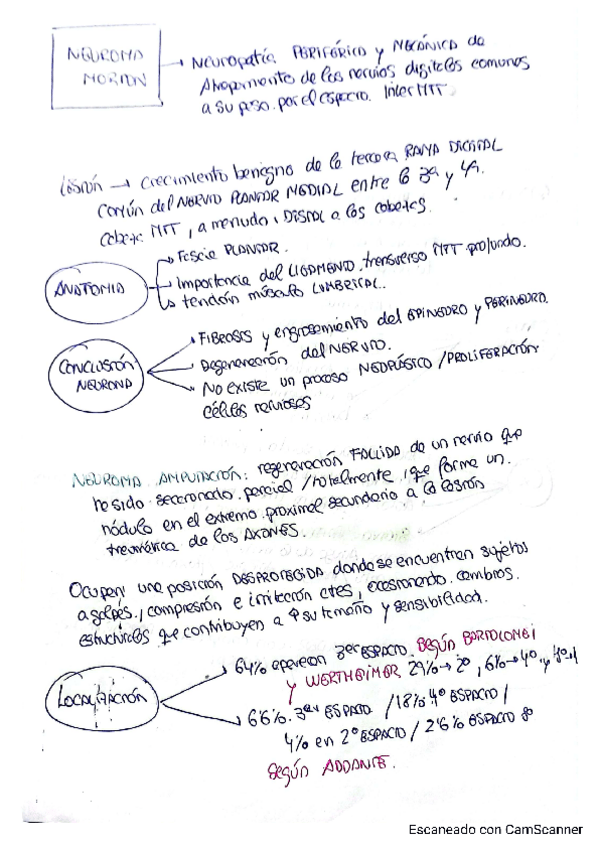 NEUROMA
MORTON
→ Neuropatía PERIFÉRICA y MECÁNICA de
Atrapamiento de los nervios digitales comunes
a su paso por el espacio InterMTT.
Lesión → Crecimiento benigno de la tercera RAMA DIGITAL
COMÚN del NERVIO PLANTAR MEDIAL entre la 3ª y 4ª
Cabeza MTT, a menudo, DISTAL a las cabezas.
ANATOMIA
→ Fascia PLANTAR.
→ Importancia del LIGAMENTO transverso MTT profundo.
→ tendón músculo LUMBRICAL.
CONCLUSIÓN
NEUROMA
→ FIBROSIS y engrosamiento del EPINEURO y PERINEURO.
→ Degeneración del NERVIO.
→ No existe un proceso NEOPLÁSICO / PROLIFERACIÓN
células nerviosas
NEUROMA AMPUTACIÓN: regeneración FALLIDA de un nervio que
ha sido seccionado parcial / totalmente, que forma un
nódulo en el extremo proximal secundario a la lesión
traumática de los AXONES.
Ocupan una posición DESPROTEGIDA donde se encuentran sujetos
a golpes, compresión e irritación ctes, ocasionando cambios
estructurales que contribuyen a ↑ su tamaño y sensibilidad.
LOCALIZACIÓN
→ 64% aparecen 3er ESPACIO. Según BARTOLOMEI
y WERTHEIMER 29% → 2º, 6% → 4º y
→ 66% 3er ESPACIO / 18% 4º ESPACIO /
4% en 2º ESPACIO / 2'6% ESPACIO
Según ADDANTE.
Escaneado con CamScanner